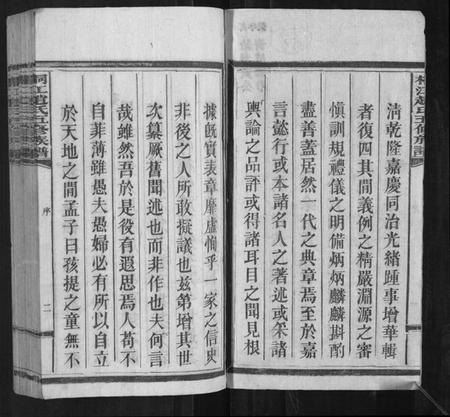 清乾隆嘉慶同治光緒踵事增華輯
者復四其間義例之精嚴淵源之審
愼訓規禮儀之明備炳炳麟麟斟酌
盡善蓋居然一代之典章焉至於嘉
言懿行或本諸名人之著述或采諸
輿論之品評或得諸耳目之聞見根
據旣實表章靡虛恂乎一家之信史
非後之人所敢擬議也茲第增其世
次纂厥舊聞述也而非作也夫何言
哉雖然吾於是後有遐思焉人苟不
自菲薄雖愚夫愚婦必有所以自立
於天地之間孟子曰孩提之童無不
桐江趙氏五修族譜
序
二